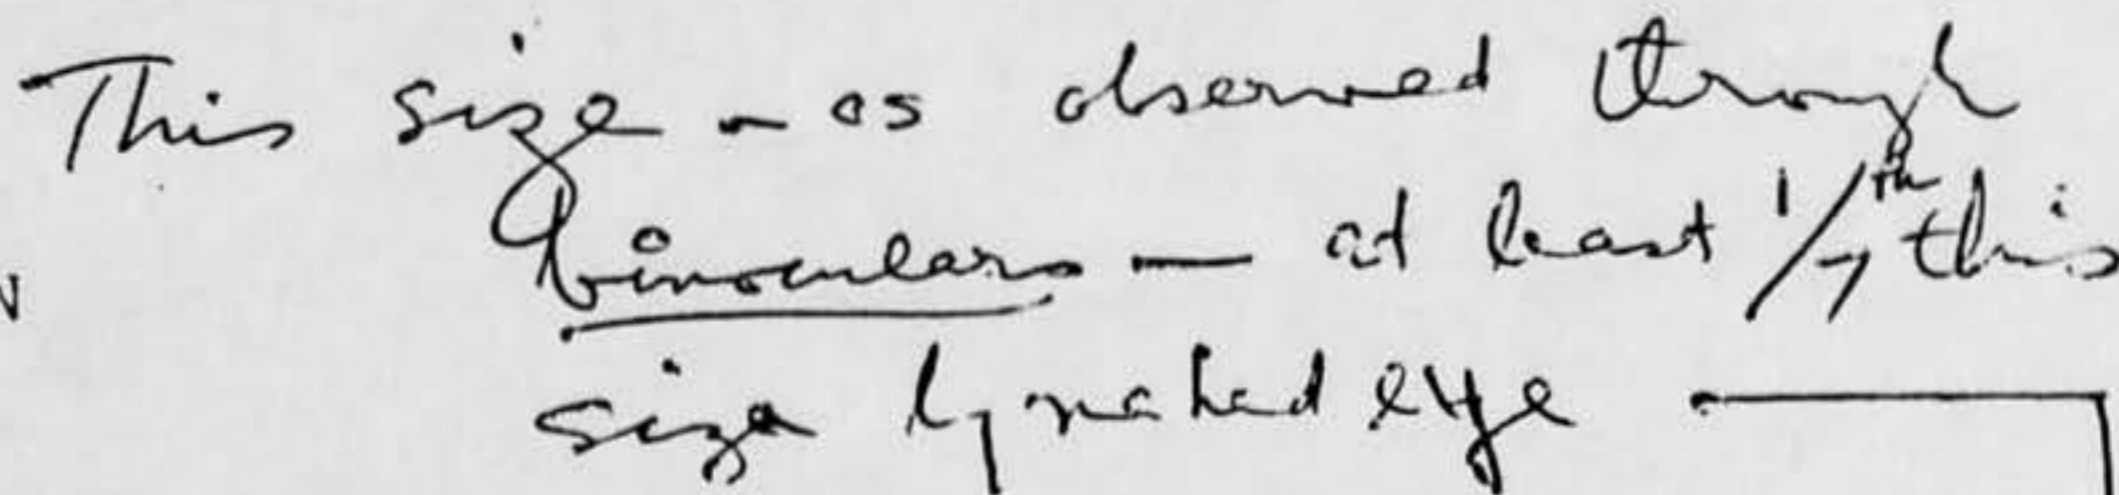 This size - as observed through
binoculars — at least 1/7th this
size by naked eye